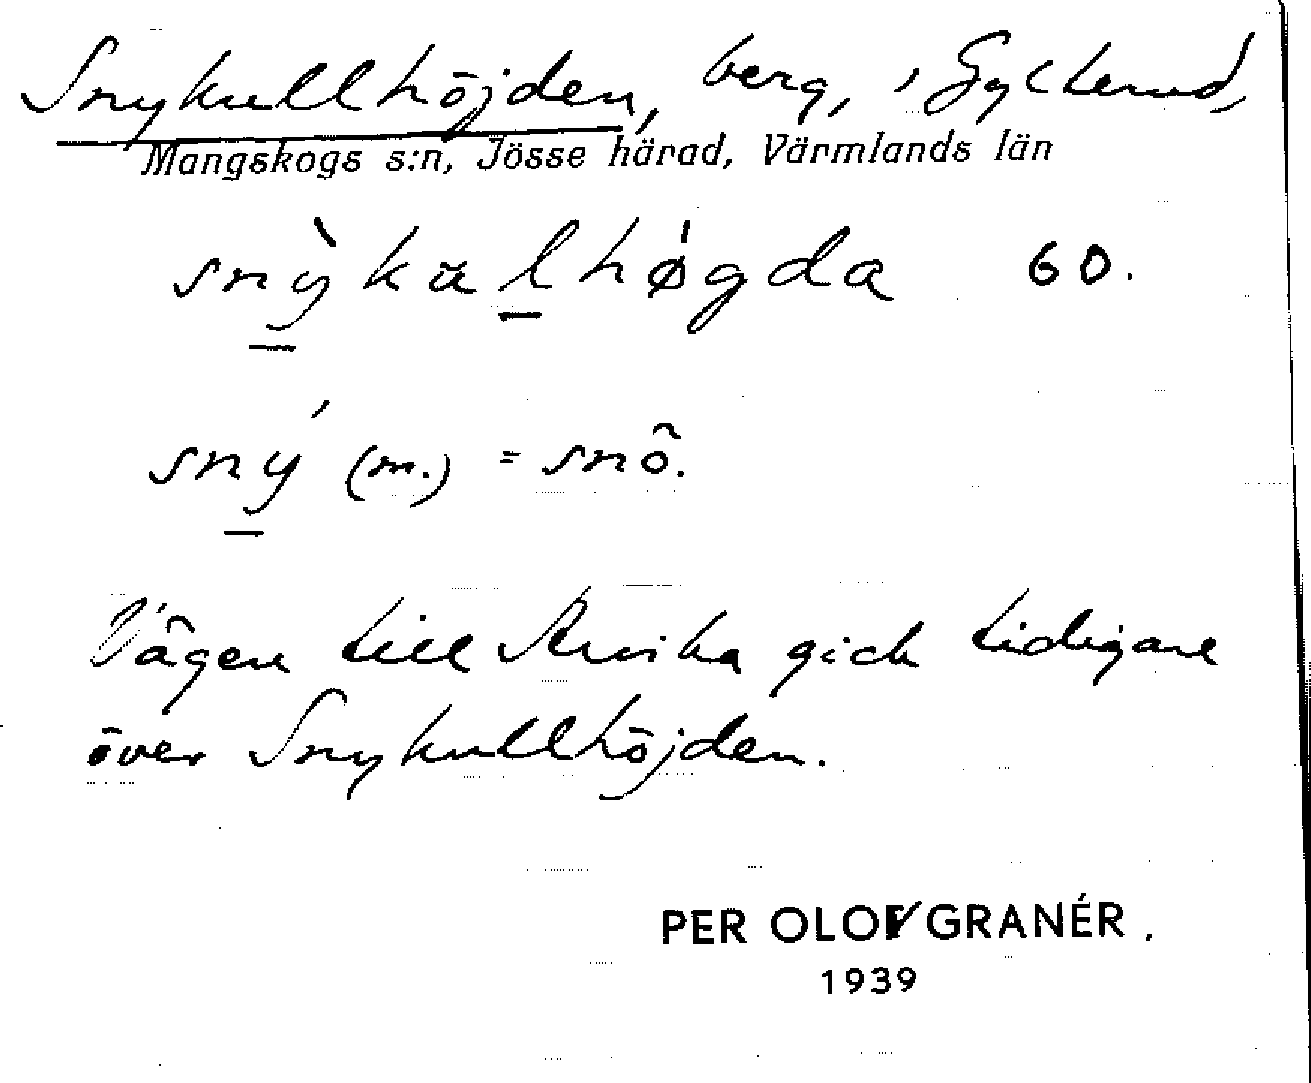 Snykullhöjden, berg, i Gylterud,
Mangskogs s:n, Jösse härad, Värmlands län
snỳkŭlhǿgda 60.
sný (m.) = snö.
Vägen till Arvika gick tidigare
över Snykullhöjden.
PER OLOV GRANÉR.
1939